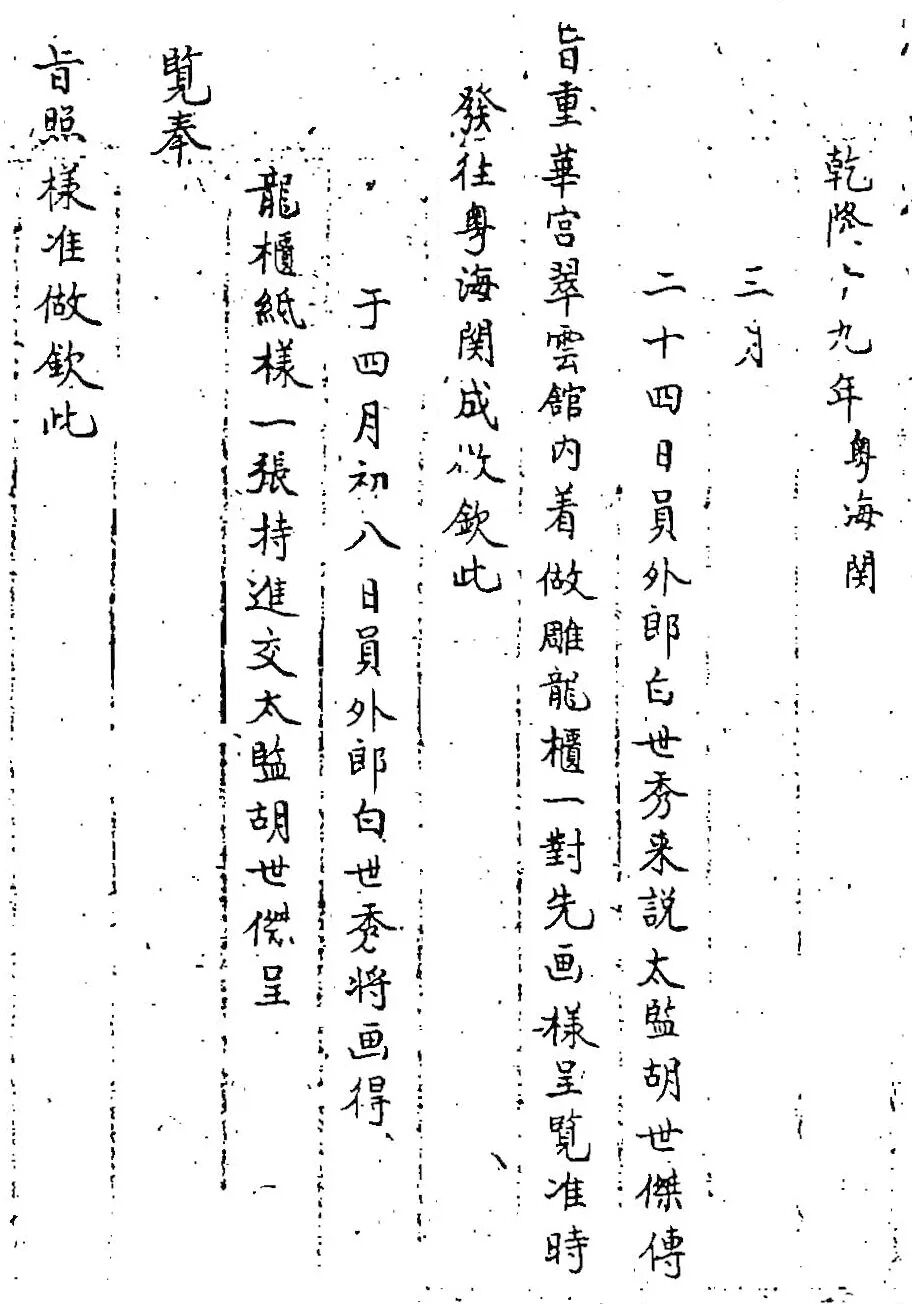 乾隆十九年粤海関
三月
二十四日員外郎白世秀来説太監胡世傑傳
旨重華宮翠雲舘内着做雕龍櫃一對先画樣呈覧准時
發往粤海関成做欽此
于四月初八日員外郎白世秀将画得
龍櫃紙樣一張持進交太監胡世傑呈
覧奉
旨照樣准做欽此